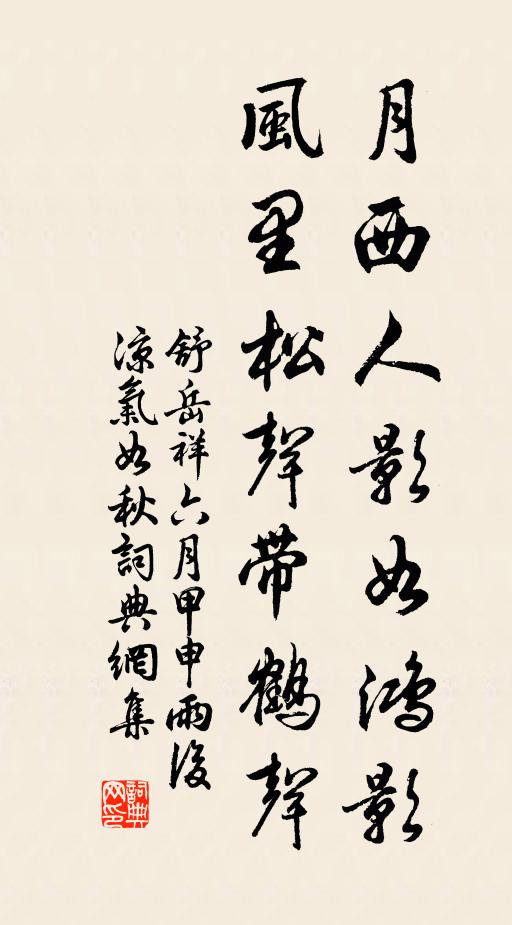 月西人影如鴻影
風里松聲帶鶴聲
舒岳祥六月甲申雨後
凉氣如秋詞典網集
詞典
网印